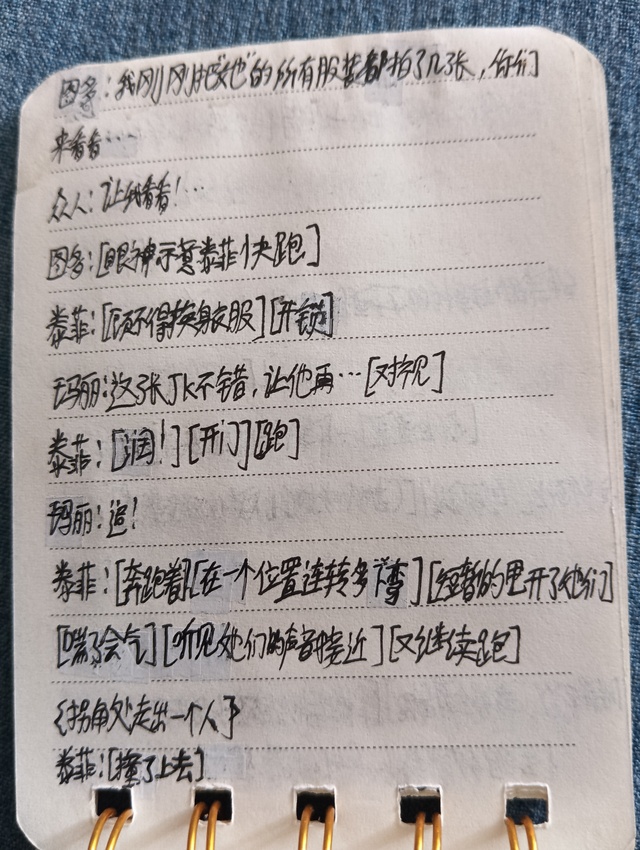 图多:我刚刚把“她”的所有服装都拍了几张,你们
来看看…
众人:让我看看!…
图多:[眼神示意泰菲快跑]
泰菲:[顾不得换身衣服][开锁]
玛丽:这张JK不错,让他再…[对视]
泰菲:[润!][开门][跑]
玛丽:追!
泰菲:[奔跑着][在一个位置连转多下弯][短暂的甩开了她们]
[喘了会气][听见她们的声音接近][又继续跑]
{拐角处走出一个人}
泰菲:[撞了上去]